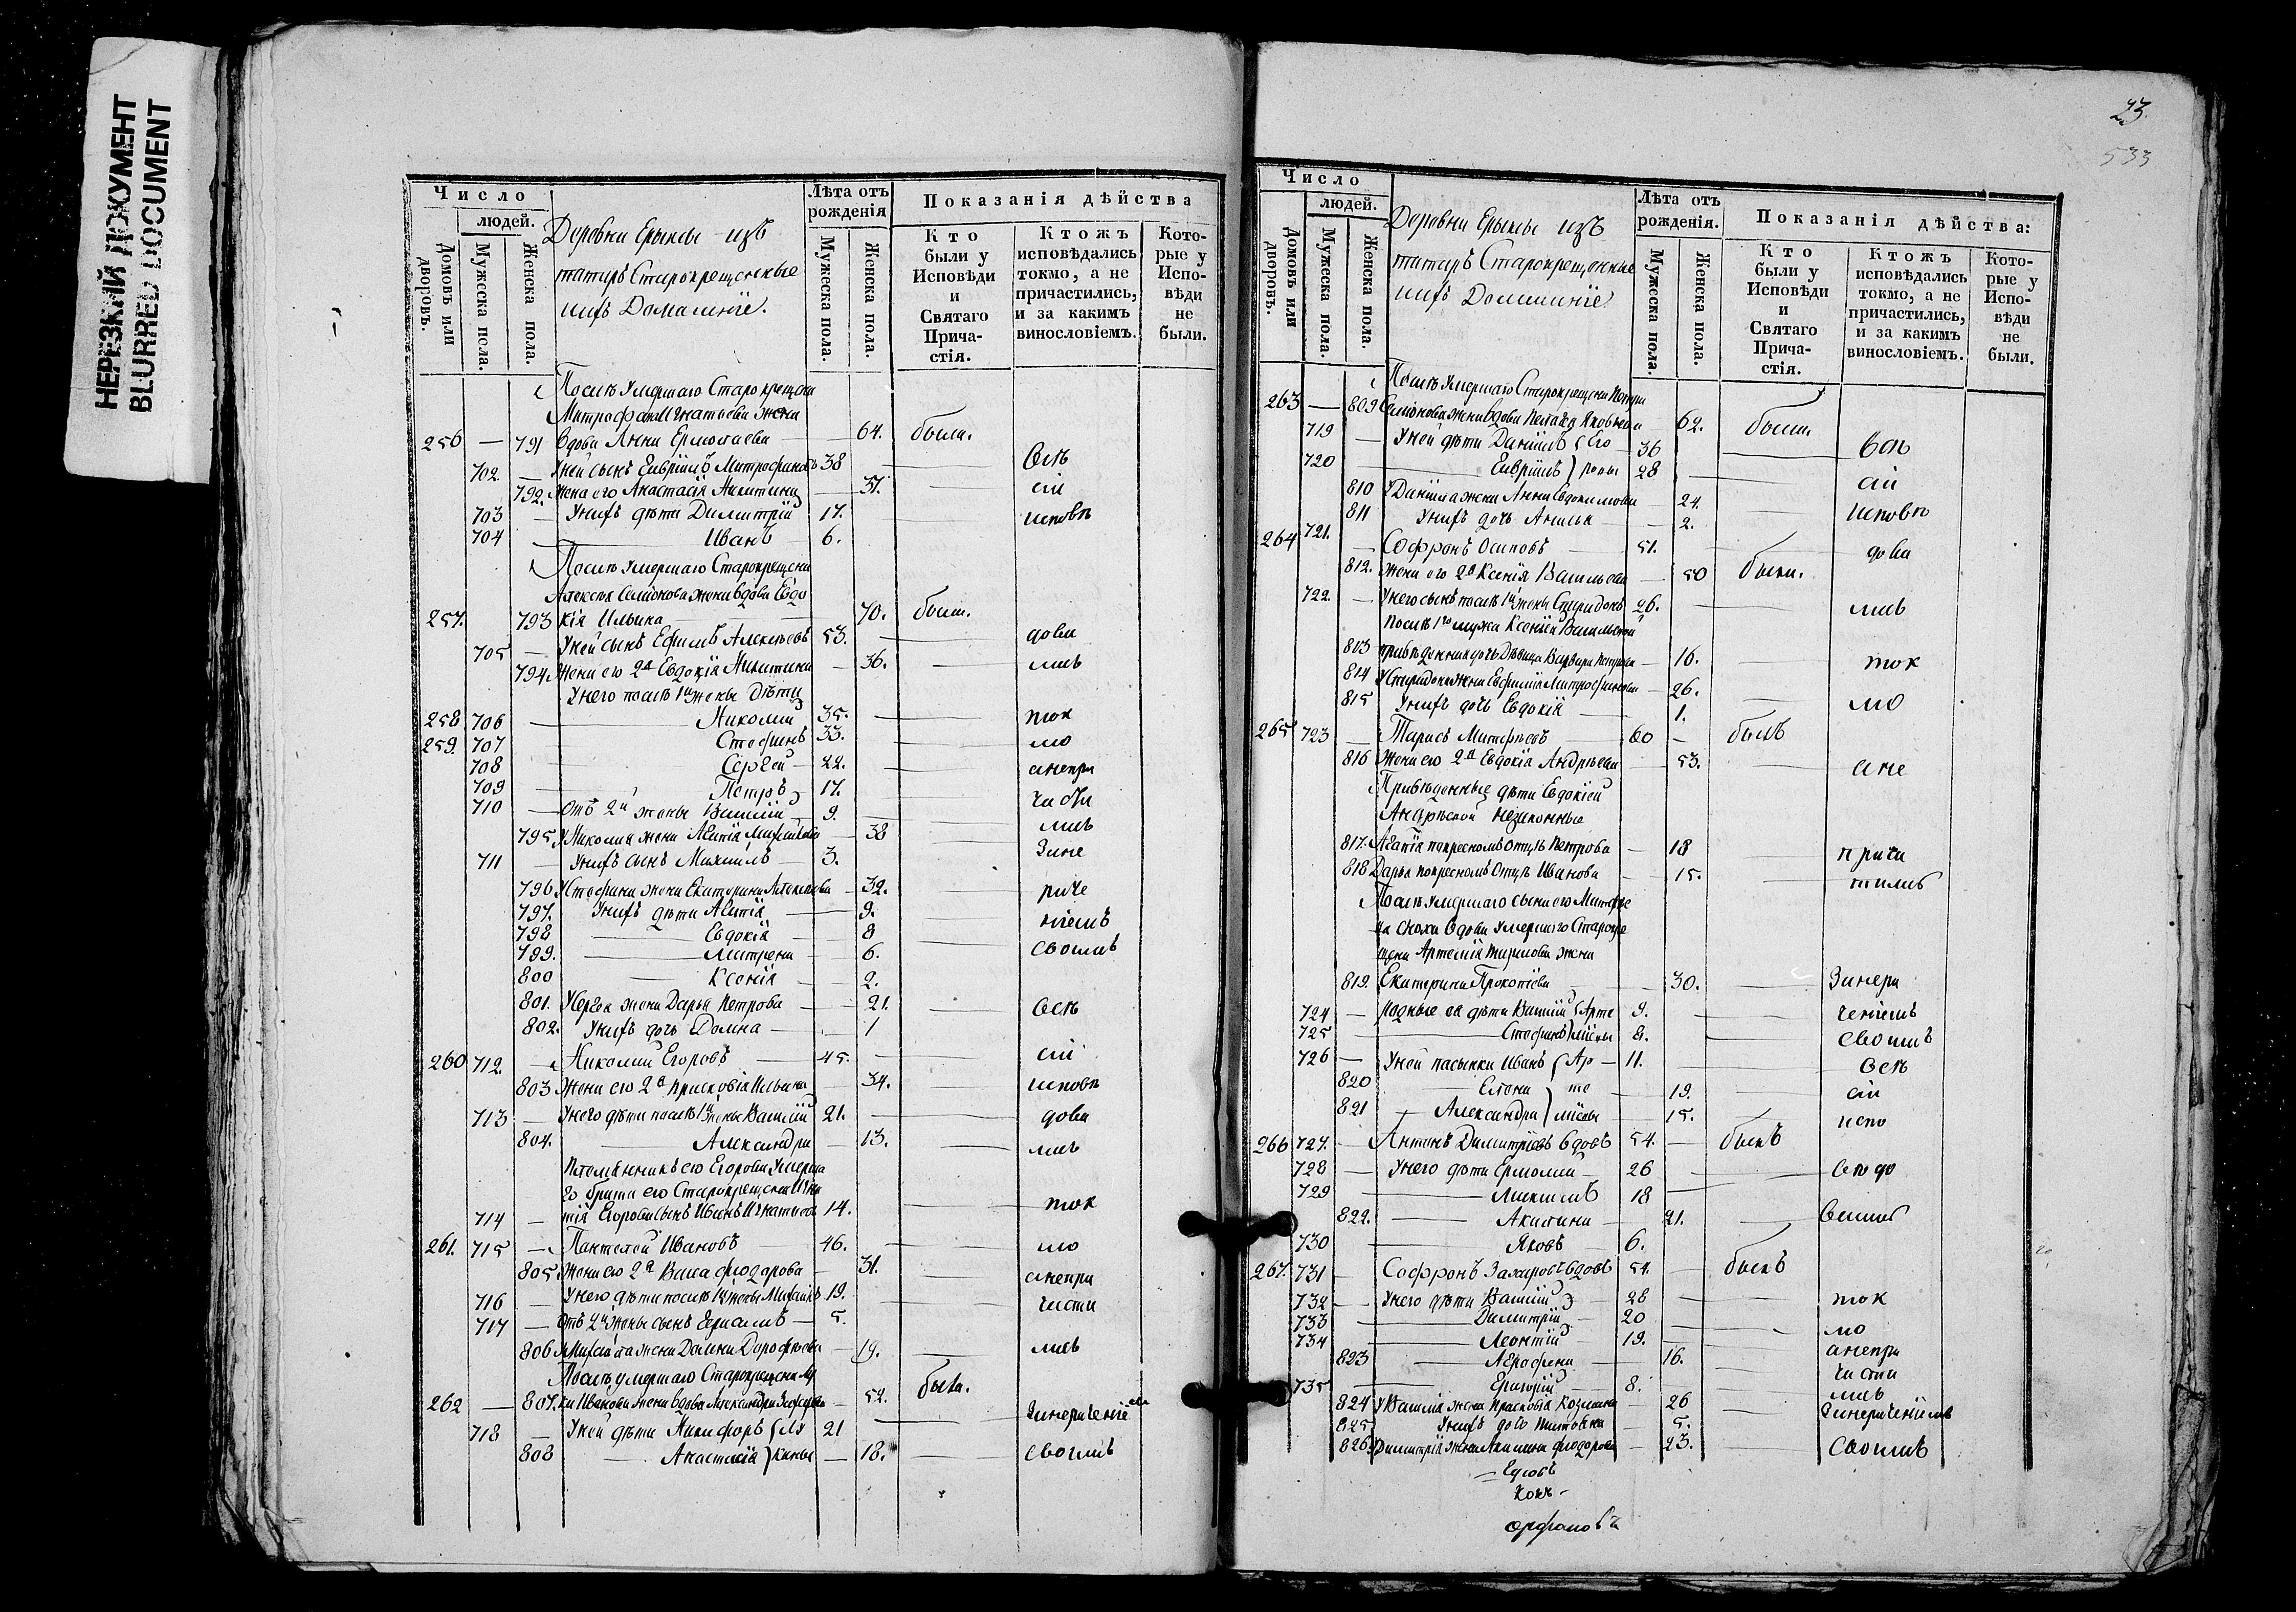 НЕРЕЗКИЙ ДОКУМЕНТ
BLURRED DOCUMENT
Число
людей.
Домовъ или дворовъ.
Мужеска пола.
Женска пола.
Деревни Ерыклы изъ
татаръ Старокрещенные
ихъ Домашніе.
Лѣта отъ рожденія
Мужеска пола.
Женска пола.
Показанія дѣйства
Кто были у Исповѣди и Святаго Прича-стія.
Ктожъ исповѣдались токмо, а не причастились, и за какимъ винословіемъ.
Кото-рые у Испо-вѣди не были.
Послѣ умершаго Старокрещена
Митрофана Игнатьева жена
256 — 791 вдова Анна Ермолаева — 64. была.
702. — У ней сынъ Гавріилъ Митрофановъ 38 — всѣ
792. Жена его Анастасія Никитина — 37. — сіи
703 — У нихъ дѣти Димитрій 17. исповѣ
704 — Иванъ 6.
Послѣ умершаго Старокрещена
Алексѣя Семіонова жена вдова Евдо
257. 793 кія Ильина 70. была.
705 — У ней сынъ Ефимъ Алексѣевъ 53. — дова
794 Жена его 2я Евдокія Никитина — 36. — лись
У него послѣ 1й жены дѣти
258 706 — Николай 35. — ток
259. 707 Стефанъ 33. — мо
708 Сергей — 22. — а непри
709 Петръ 17. — части
710 — Отъ 2й жены Василій 9. — лись
795. У Николая жена Агапія Михайлова — 38
711 — У нихъ сынъ Михаилъ — 3. Зане
796 У Стефана жена Екатерина Алексѣева — 32. — рече
797. У нихъ дѣти Агапія — 9. ніемъ
798 — Евдокія — 8
799. — Матрена — 6. своимъ
800 — Ксенія — 2.
801. У Сергея жена Дарья Петрова — 21. — Всѣ
802. У нихъ дочь Домна — 1
260 712. — Николай Егоровъ — 45. — сіи
803 Жена его 2я Прасковія Ильина — 34. — исповѣ
713 — У него дѣти послѣ 1й жены Василій 21. — дова
804. — Александра — 13. — лись
Племянникъ его Егорова умерша
го брата его Старокрещена Игна
714 — тія Егорова сынъ Иванъ Игнатьевъ 14. — ток
261. 715 — Пантелей Ивановъ 46. — мо
805. Жена его 2я Васса Феодорова — 31. — а непри
716 — У него дѣти послѣ 1й жены Михаилъ 19. — части
717 — Отъ 2й жены сынъ — 5.
806 У Михаила жена Домна Дорофеева — 19. — лись
Послѣ умершаго Старокрещена Лу
262 — 807. ки Иванова жена вдова Александра — 52. была.
Занереченіемъ
718 — У ней дѣти Никифоръ (Лу 21
808 — Анастасія) кины — 18. — своимъ
23.
533
Число
людей.
Домовъ или дворовъ.
Мужеска пола.
Женска пола.
Деревни Ерыклы изъ
татаръ Старокрещенные
ихъ Домашніе
Лѣта отъ рожденія.
Мужеска пола.
Женска пола.
Показанія дѣйства:
Кто были у Исповѣди и Святаго Прича-стія.
Ктожъ исповѣдались токмо, а не причастились, и за какимъ винословіемъ.
Кото-рые у Испо-вѣди не были.
Послѣ умершаго Старокрещена Петра
263 — 809 Семіонова жена вдова Яковлева 62. была.
719 — У ней дѣти Даніилъ (Пе 36 — Всѣ
720 — Гавріилъ) тровы 28
сіи
810 У Даніила жена Анна Евдокимова 24.
811 У нихъ дочь — 2. исповѣ
264 721. — Софронъ Осиповъ — 51. дова
812. Жена его 2я Ксенія Васильева — 50 была.
722. — У него сынъ послѣ 1й жены Спиридонъ 26. — лись
Послѣ 1го мужа Ксеніей Васильевой
803 приведенная дочь дѣвица Варвара Петрова — 16. — ток
814 У Спиридона жена Евфимія Митрофанова — 26.
815 У нихъ дочь Евдокія — 1. — мо
265 723 — Тарасъ Матфѣевъ — 60 — былъ
816 Жена его 2я Евдокія Андрѣева — 53. — а не
Приведенные дѣти Евдокіей
Андрѣевой незаконные
817. Агапія по крестномъ отцѣ Петрова — 18 — прича
818 Дарья по крестномъ отцѣ Иванова — 15. — тились
Послѣ умершаго сына его Матфе
я сноха вдова умершаго Старокре
щена Артемія жена
819. Екатерина Прокопіева — 30. — Занере
724 — Родные ея дѣти Василій (Арте 9. — ченіемъ
725 — Стефанъ) міевы 8. — своимъ
726 — У ней пасынки Иванъ (Ар — 11. — Всѣ
820 — Елена те — 19. — сіи
821 — Александра) міевы — 15. — испо
266 727. — Антонъ Димитріевъ вдовъ 54. — былъ
728 — У него дѣти Ермолай — 26 — вѣдо
729 — Максимъ 18 —
822. — Акилина — 21. — вались
730 — Яковъ 6.
267. 731 — Софронъ Захаровъ вдовъ 54. — былъ
732 — У него дѣти Василій — 28 — ток
733 — Димитрій — 20 — мо
734 — Леонтій — 19. — а непри
823 — Агрофена — 16. — части
735 — Григорій — 8. — лись
824 У Василія жена Прасковія Козмина — 26 Занереченіемъ
825 У нихъ дочь — 5.
826 У Димитрія жена Акилина Феодорова — 23. — своимъ